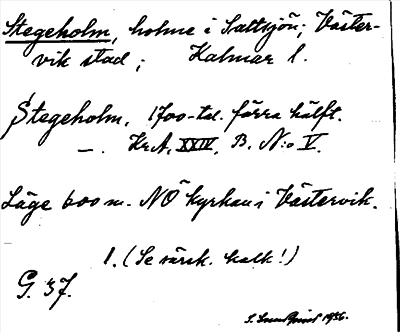 Stegeholm, holme i Saltsjön; Väster-
vik stad; Kalmar l.
Stegeholm. 1700-tal. förra hälft.
—. Kr.A. XXIV. B. N:o V.
Läge 600 m. NÖ kyrkan i Västervik.
1. (Se särsk. kalk!)
G. 37.
S. 1936.